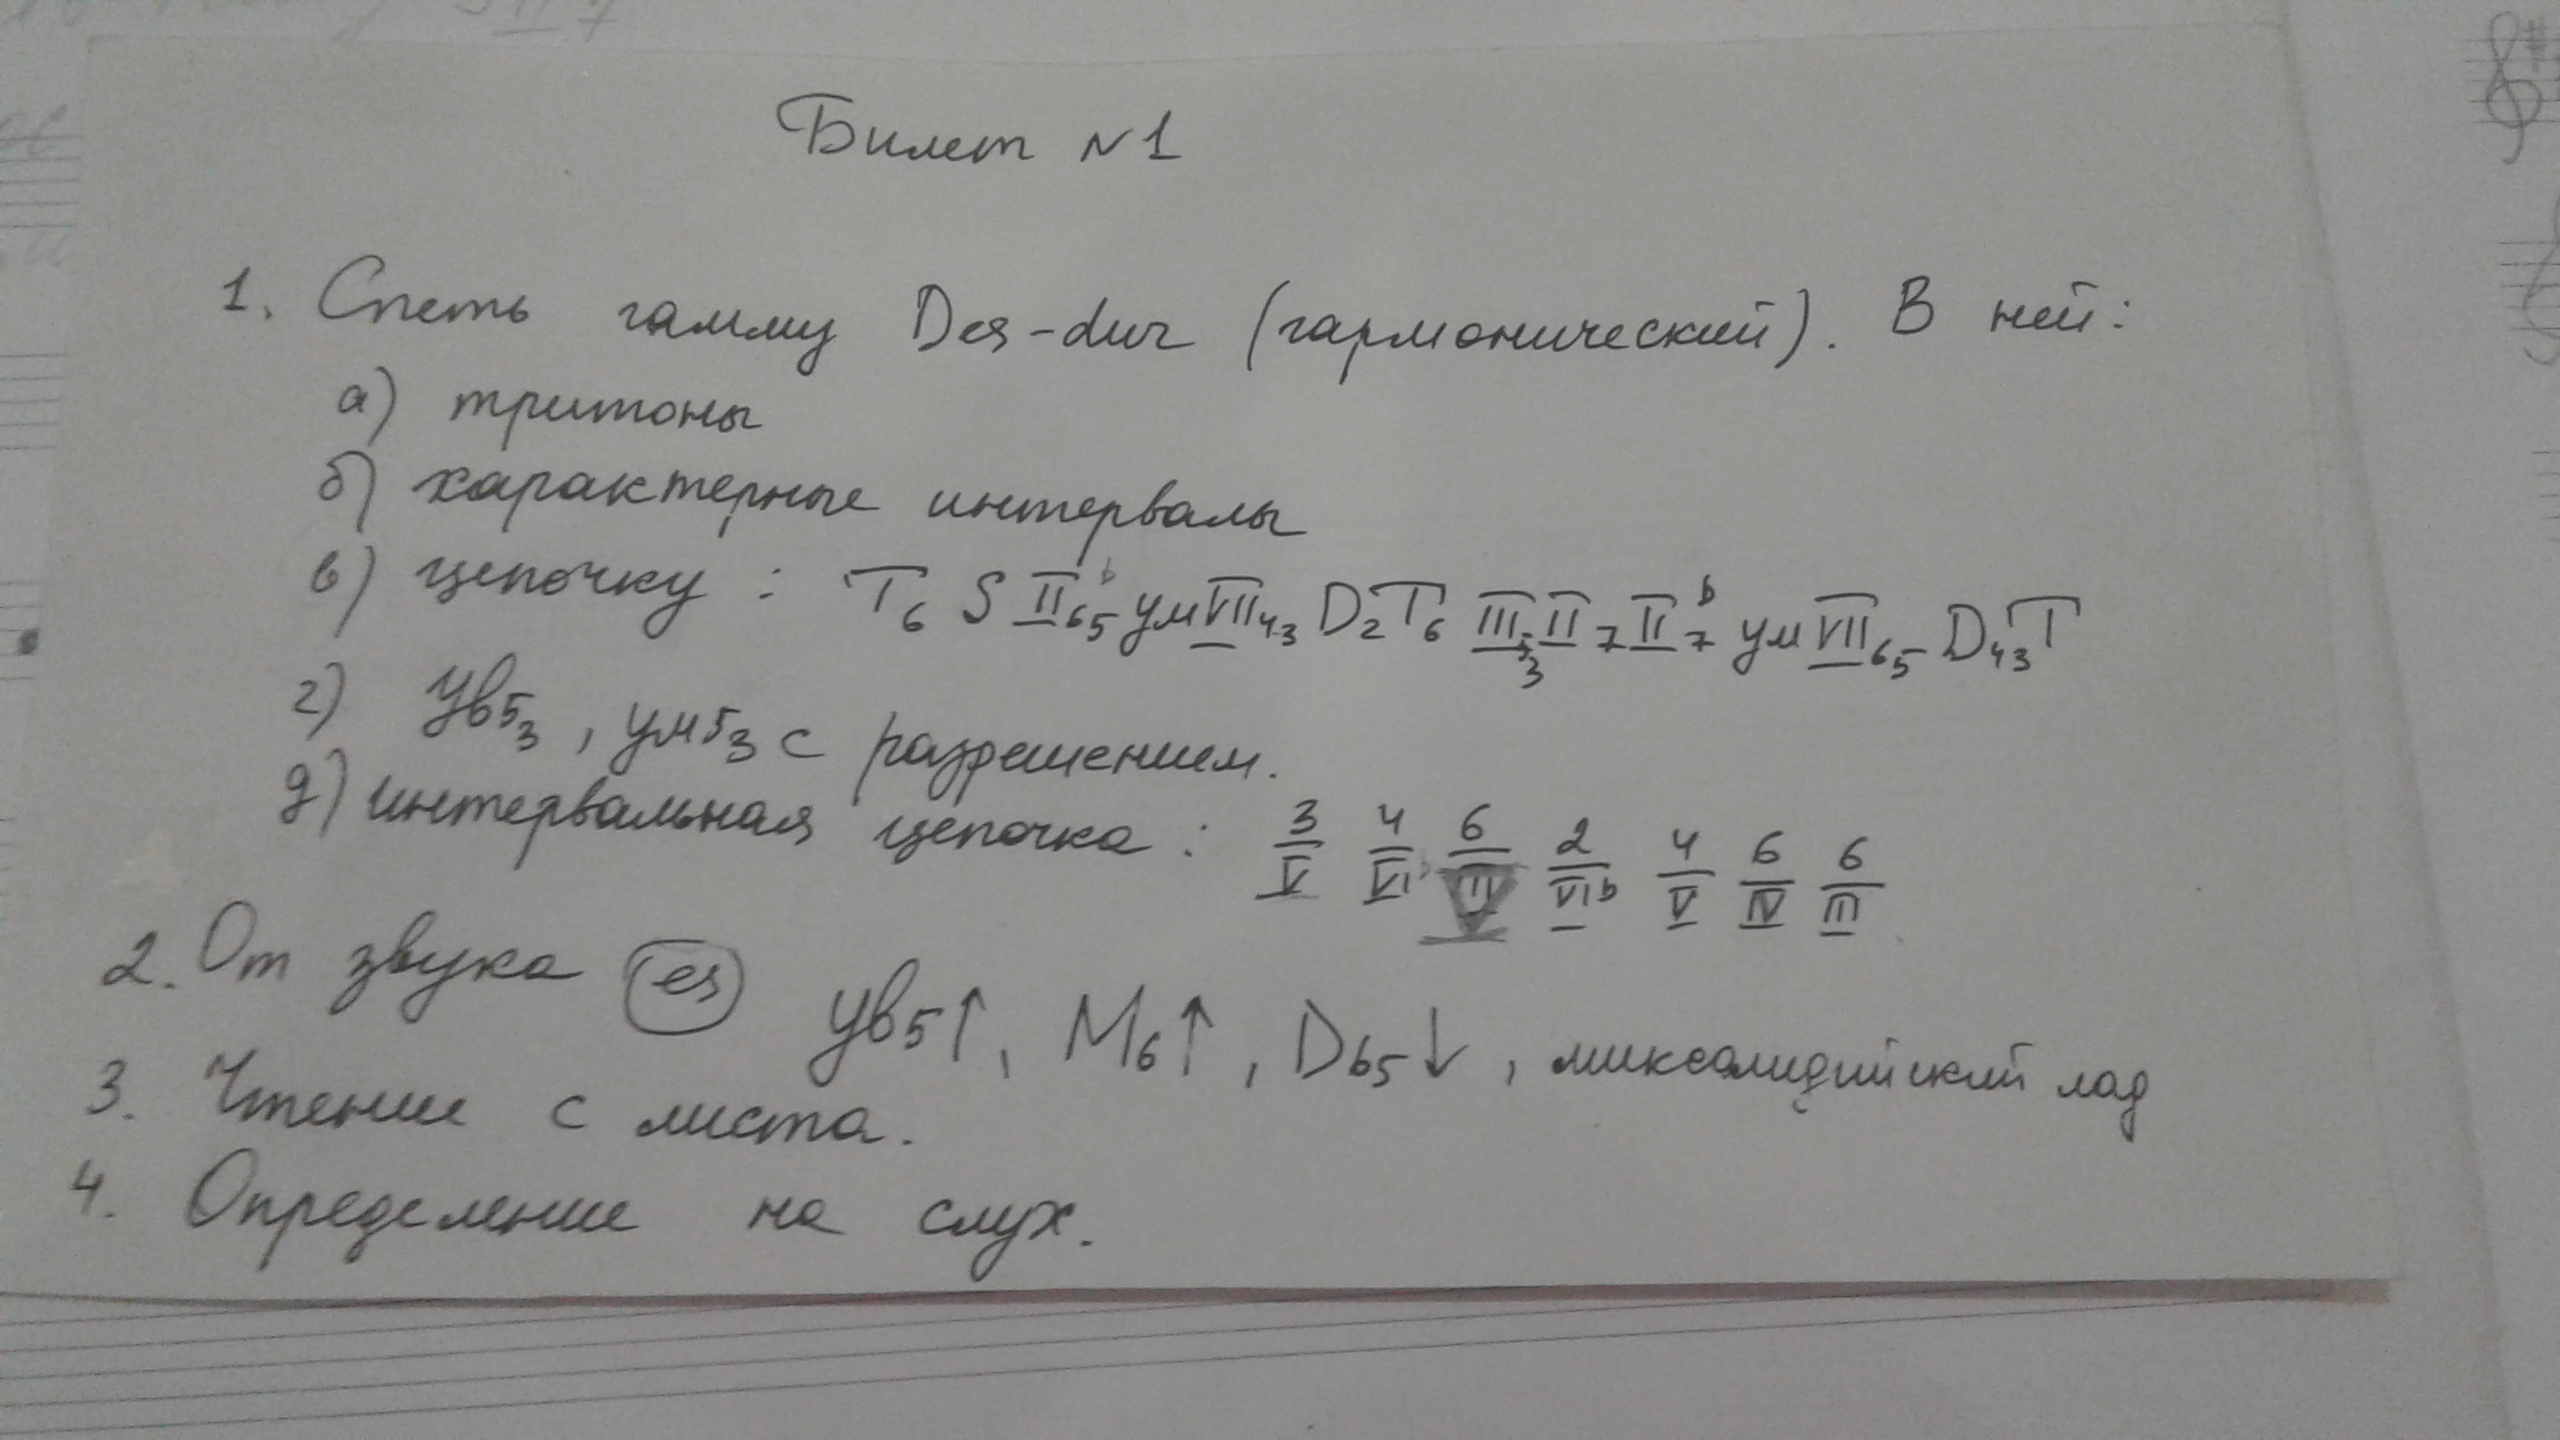 Билет N1
1. Спеть гамму Des-dur (гармонический). В ней:
а) тритоны
б) характерные интервалы
в) цепочку : T6 S II♭65 ум VII43 D2 T6 III53 II7 II♭7 ум VII65 D43 T
г) Ув53, ум53 с разрешением.
д) интервальная цепочка : 3/V 4/VI♭ 6/V 2/VI♭ 4/V 6/IV 6/III
2. От звука es Ув5↑, М6↑, D65↓, миксолидийский лад
3. Чтение с листа.
4. Определение на слух.